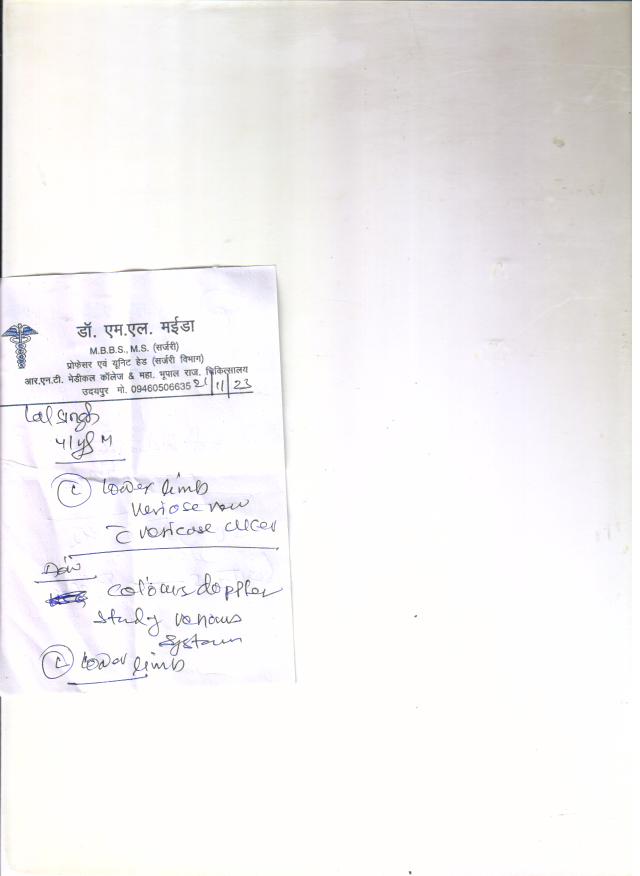 डॉ. एम.एल. मईडा
M.B.B.S., M.S. (सर्जरी)
प्रोफेसर एवं यूनिट हेड (सर्जरी विभाग)
आर.एन.टी. मेडीकल कॉलेज & महा. भूपाल राज. चिकित्सालय
उदयपुर मो. 09460506635 21/11/23
Lal Singh
41yr M
(L) lower limb
Varicose
c̄ varicose ulcer
colours doppler
study venous
system
(L) lower limb